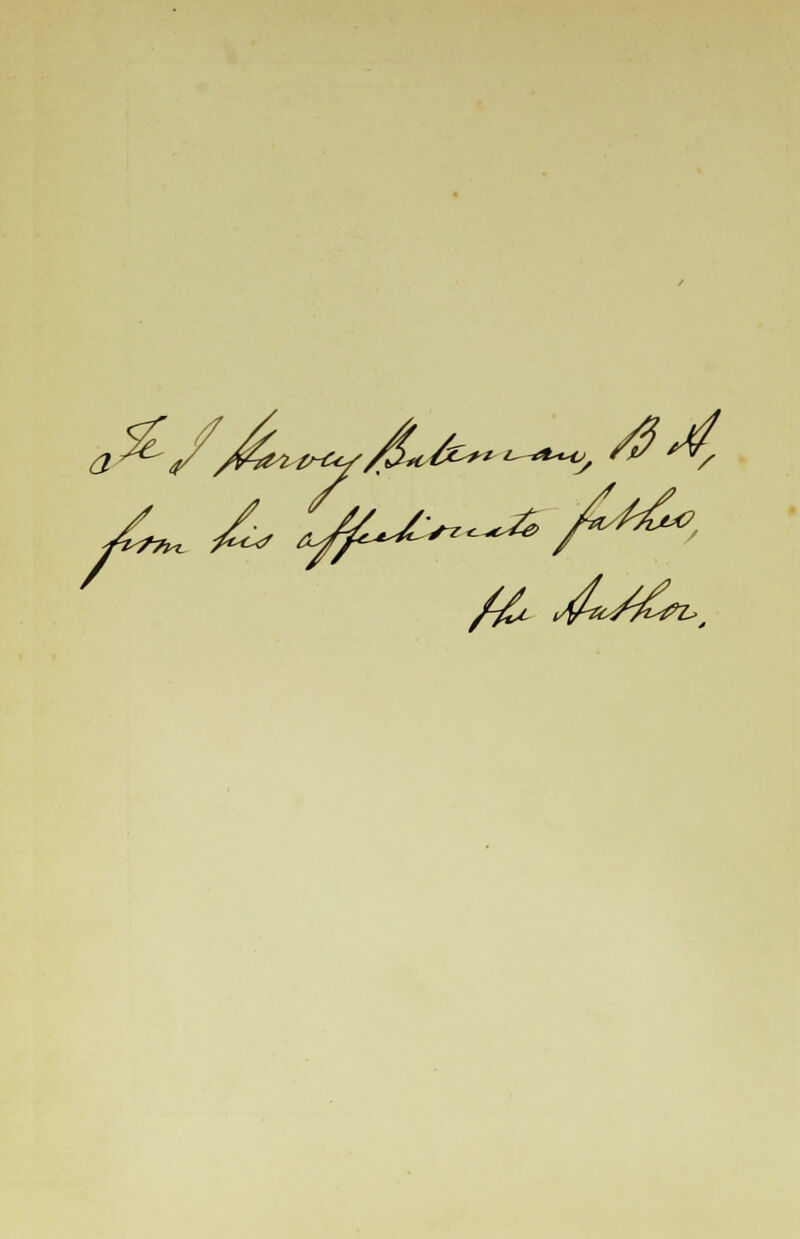 To Harvey Bateman, B A,
from his affectionate father,
the Author.